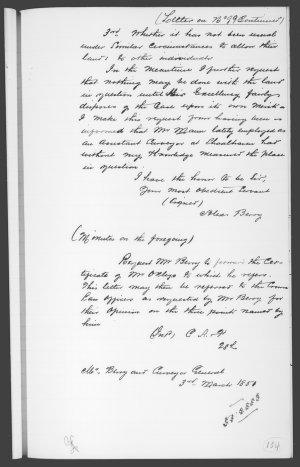 (Letter on No 99 Continued)
3rd Whether it has not been usual
under Similar Circumstances to allow their
land to other individuals
In the Meantime I further request
that nothing may be done with the land
in question until His Excellency fairly
disposes of the Case upon its own Merits
I make this request from having been
informed that Mr Mann lately employed as
an Assistant Surveyor at Shoalhaven had
without my Knowledge measured the place
in question
I have the honor to be Sir,
Your most obedient Servant
(Signed)
Alexr Berry
(Minutes on the foregoing)
Request Mr Berry to forward the Cer-
tificate of Mr to which he refers.
This letter may then be referred to the Crown
Law Officers as requested by Mr Berry for
their Opinion on the three points named by
him
20th
Mr. Berry and Surveyor General
3rd March 1850
(154)